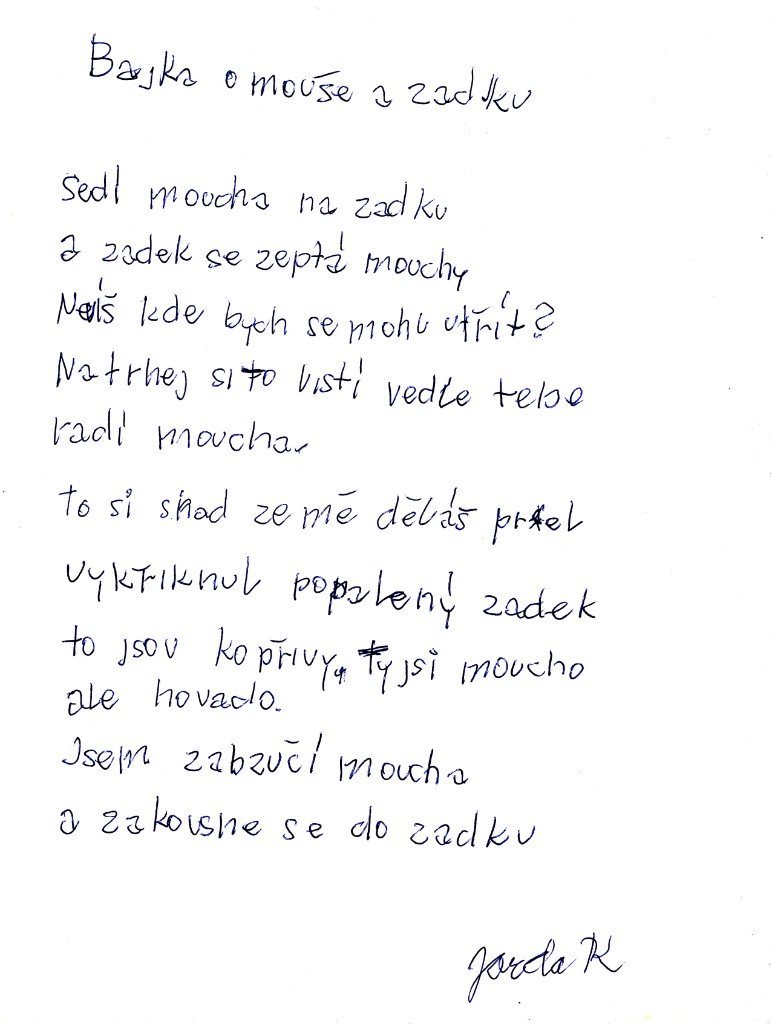 Bajka o mouše a zadku
Sedl moucha na zadku
a zadek se zeptá mouchy
Nevíš kde bych se mohl utřít?
Natrhej si to listí vedle tebe
radí moucha.
to si snad ze mě děláš prdel
vykřiknul popálený zadek
to jsou kopřivy, ty jsi moucho
ale hovado.
Jsem zabzučí moucha
a zakousne se do zadku
Jarda K